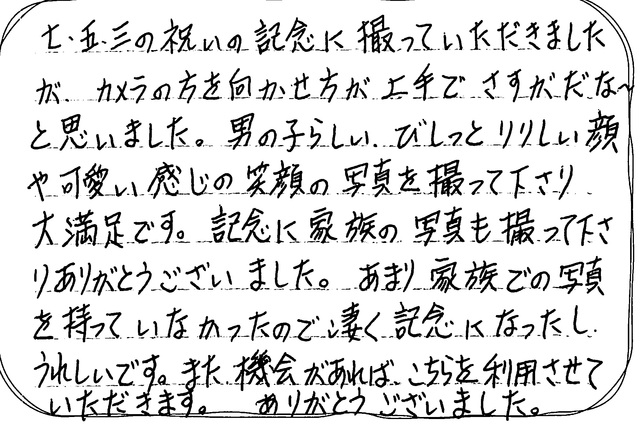 七・五・三の祝いの記念に撮っていただきました
が、カメラの方を向かせ方が上手でさすがだな～
と思いました。男の子らしい、びしっとりりしい顔
や可愛い感じの笑顔の写真を撮って下さり
大満足です。記念に家族の写真も撮って下さ
りありがとうございました。あまり家族での写真
を持っていなかったので凄く記念になったし、
うれしいです。また機会があれば、こちらを利用させて
いただきます。ありがとうございました。